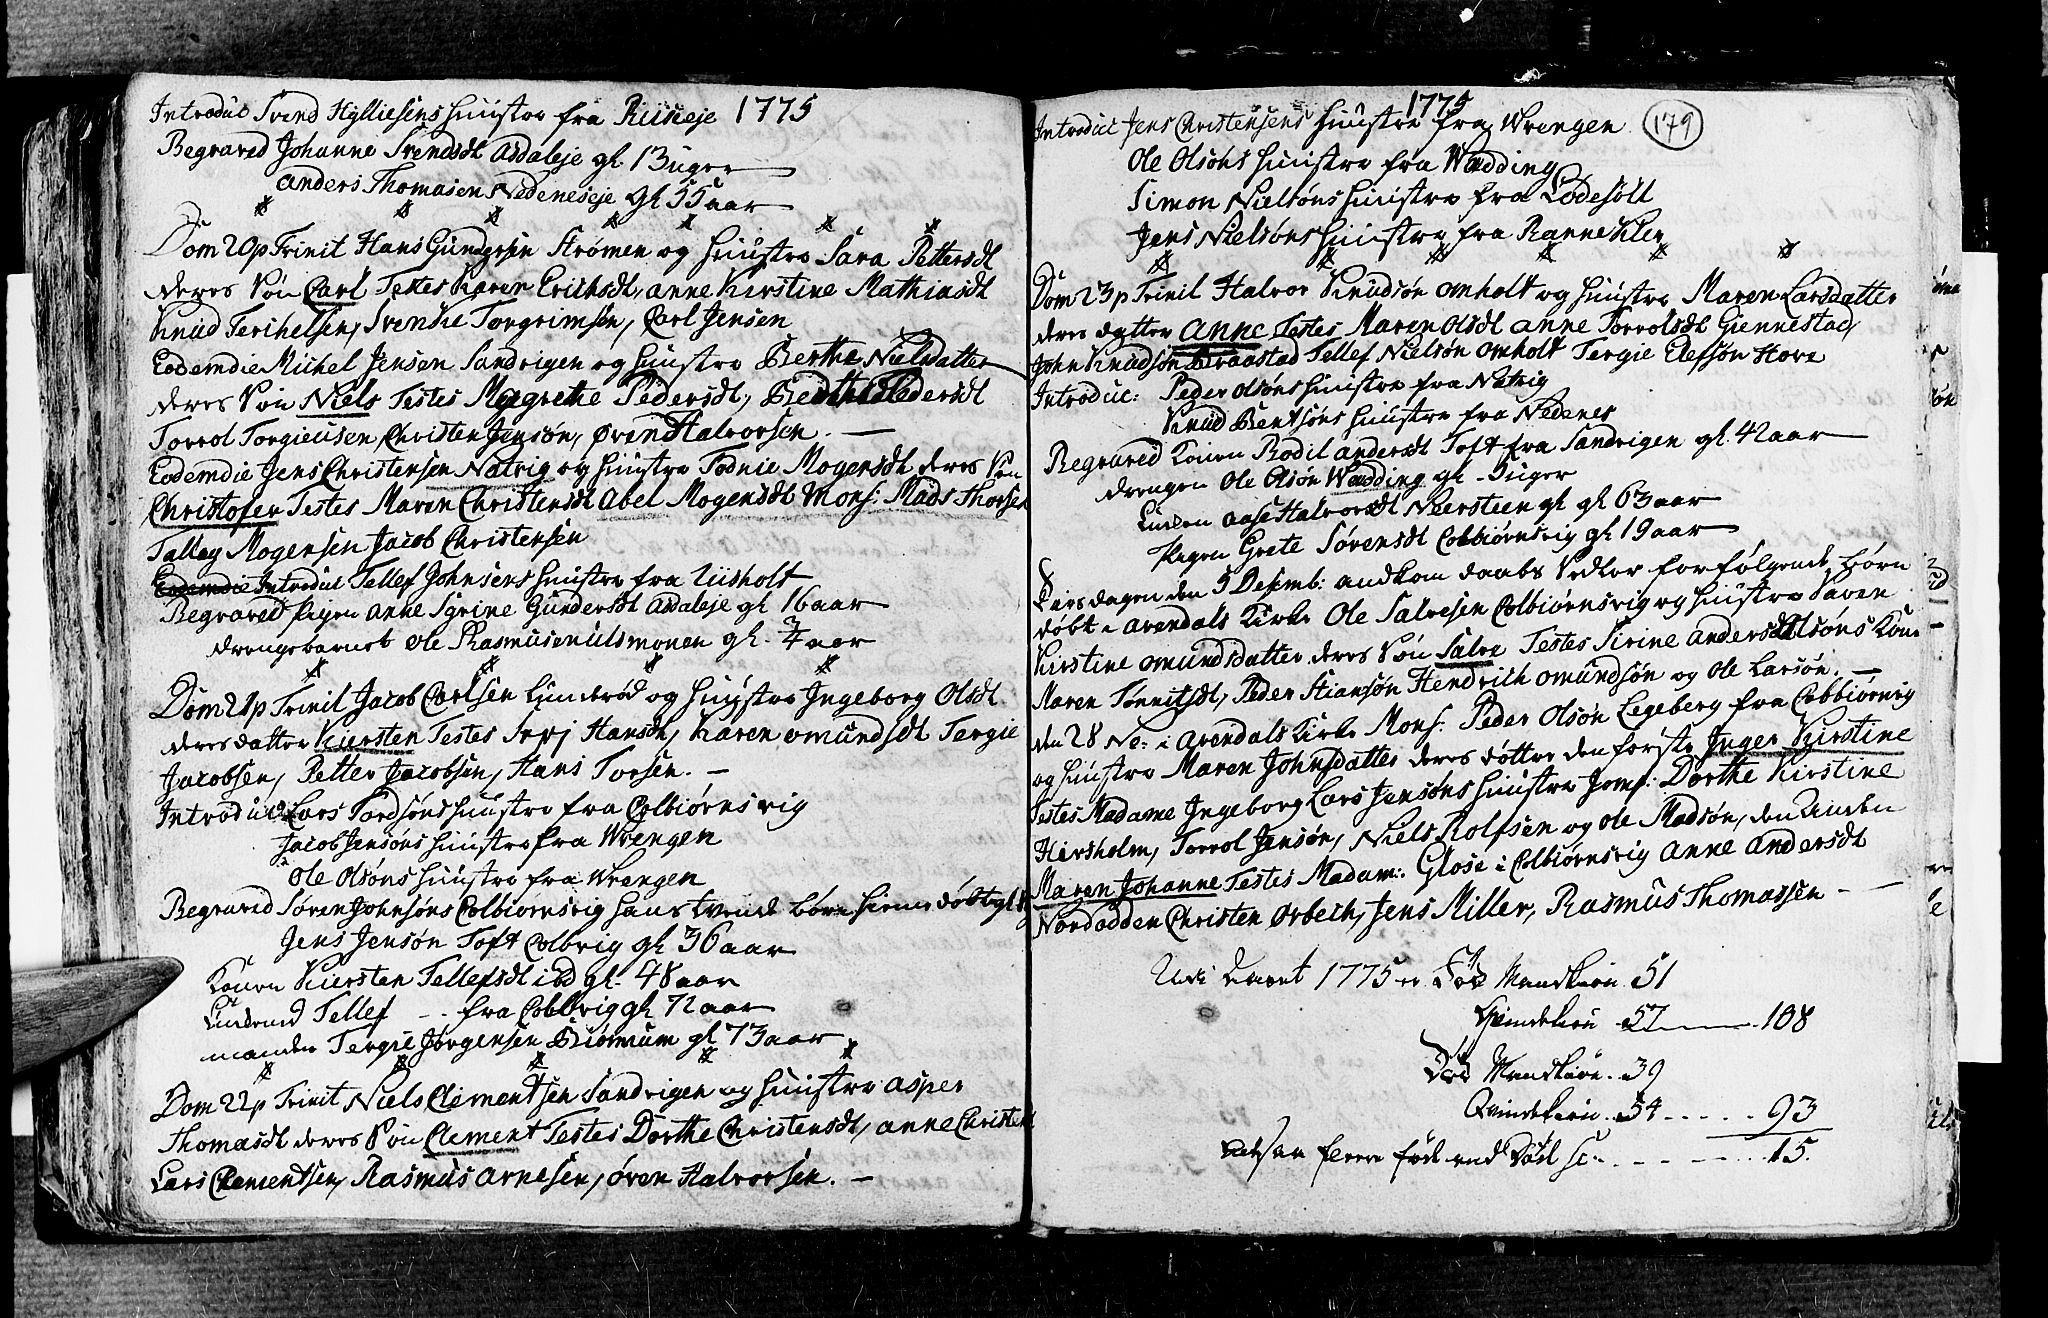 Introduc Svend Hylliesens hustro fra Riiseje 1775
Begraved Johanne Svendsdt Asdaleje gl. 13 uger
Anders Thomasen Nedeneseje gl 55 aar
Dom 20 p Trinit Hans Gundersen Strømen og hustro Sara Pettersdt
deres Søn Carl Testes Karen Erichsdt, Anne Kirstine Mathiasdt
Knud Terchelsen, Svenke Torgrimsøn, Carl Jensen
Eodem die Michel Jensen Sandvigen og hustro Berthe Nielsdatter
deres Søn Niels Testes Margrethe Pedersdt, Pedersdt
Torrol Torgieusen, Christen Jensøn, Øven Halvorsen. —
Eodem die Jens Christensen Natvig og hustro Todnie Mogensdt deres Søn
Christofer Testes Maren Christensdt Abel Mogensdt Mons: Mads Thorsen
Tallag Mogensen Jacob Christensen
Eodem die Introduc Tellef Johnsens hustro fra Uusholt
Begraved Pigen Anne Syrine Gundersdt Asdaleje gl 16 aar
drengebarnet Ole Rasmusen Ulsmonen gl. aar
Dom 21 p Trinit Jacob Carlsen Lunderød og hustro Ingeborg Olsdt
deres datter Kiersten Testes Hansdt, Karen Omundsdt Tergie
Jacobsen, Petter Jacobsen, Hans Torsen. —
Introduc Lars Tordsøns hustro fra Colbiørnsvig
Jacob Jensøns hustro fra Wrengen
Ole Olsøns hustro fra Wrengen
Begraved Søren Johnsøns Colbiørnsvig hans tvende børn hiemedøbt gl
Jens Jensøn Toft Colbvig gl 36 aar
Konen Kiersten Tellefsdt ibd gl. 48 aar
Tellef -- fra Colbvig gl 72 aar
manden Tergie Jørgensen Biømum gl 73 aar
Dom 22 p Trinit Niels Clementsen Sandvigen og hustro Asper
Thomasdt deres Søn Clement Testes Dorthe Christensdt, Anne Christen
Lars Clementsen, Rasmus Arnesen, Øven Halvorsen. —
1775
179
Introduc Jens Christensens hustro fra Wrengen
Ole Olsøns hustro fra Wadding
Simon Nielsøns hustro fra Lødesøll
Jens Nielsøns hustro fra Ranneklev
Dom 23 p Trinit Halvor Knudsøn Omholt og hustro Maren Larsdatter
deres datter Anne Testes Maren Olsdt Anne Torrolsdt Giennestad,
John Knudsøn Braastad Tellef Nielsøn Omholt Tergie Elefsøn Hove
Introduc: Peder Olsøns hustro fra Natvig
Knud Bentsøns hustro fra Nedenes
Begraved Konen Bodil Andersdt Toft fra Sandvigen gl. 42 aar
drengen Ole Olsøn Wadding gl - 3 uger
Aase Halvorsdt Neersteen gl gl 63 aar
Pigen Grete Sørensdt Colbiørnsvig gl 19 aar
Tirsdagen den 5 Desemb: andkom daabs Sedler for følgende Børn
døbt i Arendals Kirke Ole Salvesen Colbiørnsvig og hustro Karen
Kirstine Omundsdatter deres Søn Salve Testes Sirine Anders Olsøns Kone
Maren Tønnisdt, Peder Stiansøn Hendrich Omundsøn og Ole Larsøn. —
den 28 No: i Arendals Kirke Mons: Peder Olsøn Legeberg fra Colbiørnvig
og hustro Maren Johnsdatter deres døttre den første Inger Kirstine
Testes Madame Ingeborg Lars Jensøns hustro Jomf: Dorthe Kirstine
Hirsholm, Torrol Jensøn, Niels Rolfsen og Ole Madsøn, den Anden
Maren Johanne Testes Madam: Glose i Colbiørnsvig Anne Andersdt
Nordodden Christen Ørbech, Jens Miller, Rasmus Thomassen —
Udi Aaret 1775 er Fød Mandkiøn 51
Qvindekiøn 57 108
Død Mandkiøn. 39
Qvindekiøn. 54 93
Altsaa flere fød end Død 15.